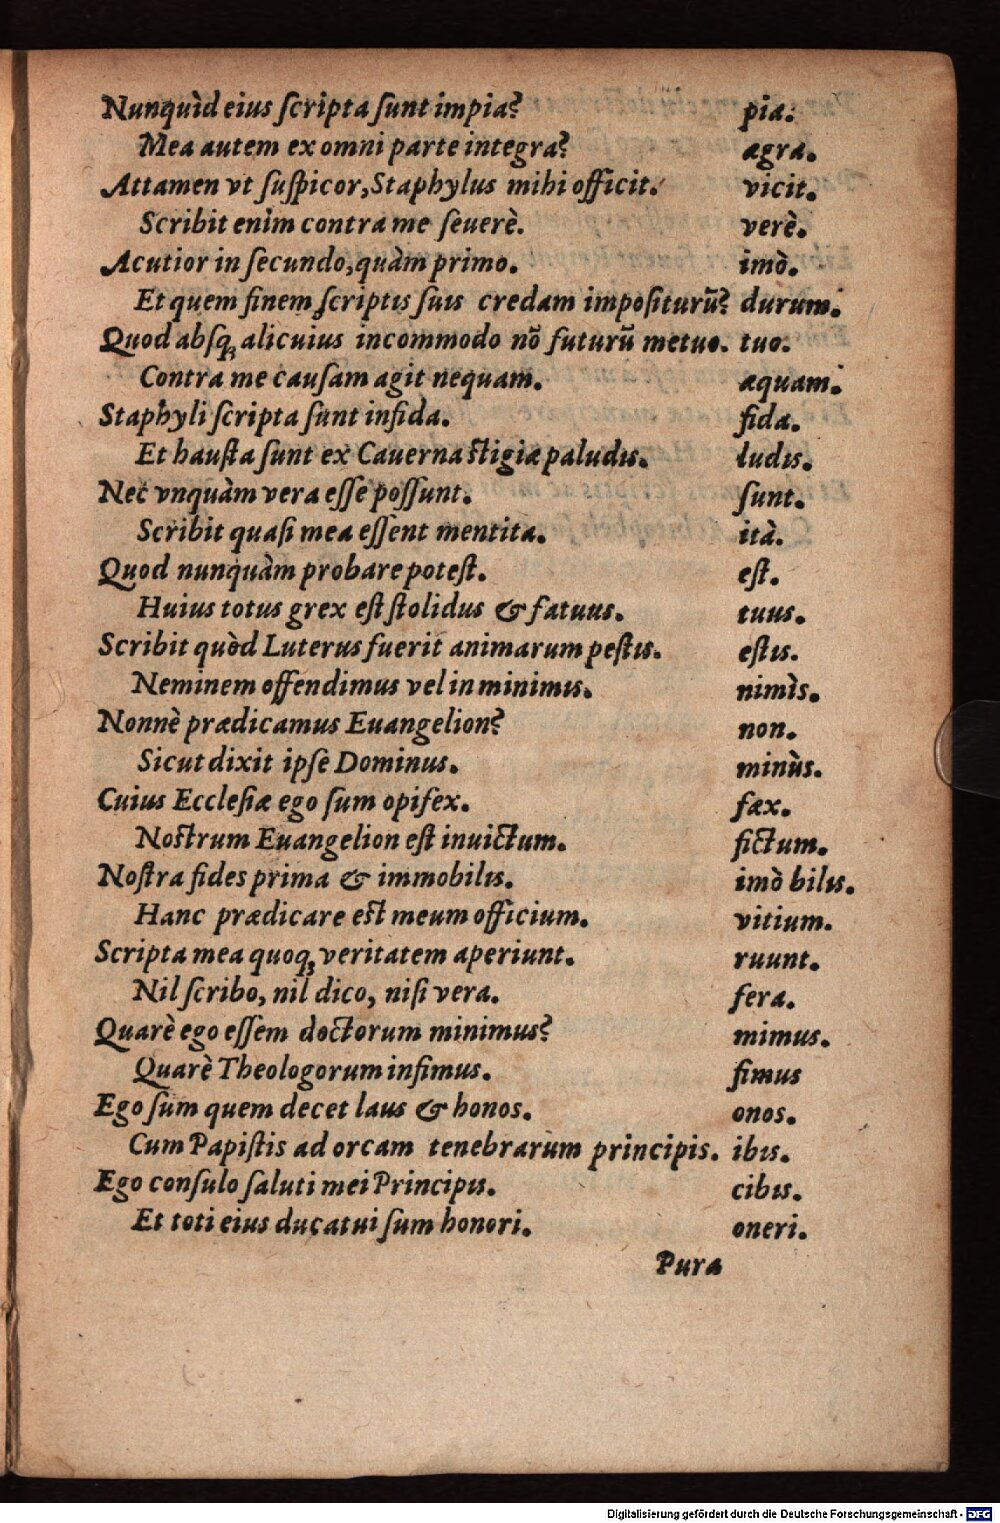 Nunquìd eius ſcripta ſunt impia? pia.
Mea autem ex omni parte integra? ægra.
Attamen vt ſuſpicor, Staphylus mihi officit. vicit.
Scribit enim contra me ſeuerè. verè.
Acutior in ſecundo, quàm primo. imò.
Et quem finem ſcriptis ſuis credam impoſiturũ? durum.
Quod abſq; alicuius incommodo nõ futurũ metuo. tuo.
Contra me cauſam agit nequam. æquam.
Staphyli ſcripta ſunt infida. fida.
Et hauſta ſunt ex Cauerna ſtigiæ paludis. ludis.
Nec vnquàm vera eſſe poſſunt. ſunt.
Scribit quaſi mea eſſent mentita. ità.
Quod nunquàm probare poteſt. eſt.
Huius totus grex eſt ſtolidus & fatuus. tuus.
Scribit quòd Luterus fuerit animarum peſtis. eſtis.
Neminem offendimus vel in minimis. nimìs.
Nonnè prædicamus Euangelion? non.
Sicut dixit ipſe Dominus. minùs.
Cuius Eccleſiæ ego ſum opifex. fæx.
Noſtrum Euangelion eſt inuictum. fictum.
Noſtra fides prima & immobilis. imò bilis.
Hanc prædicare eſt meum officium. vitium.
Scripta mea quoq; veritatem aperiunt. ruunt.
Nil ſcribo, nil dico, niſi vera. fera.
Quarè ego eſſem doctorum minimus? mimus.
Quarè Theologorum infimus. fimus
Ego ſum quem decet laus & honos. onos.
Cum Papiſtis ad orcam tenebrarum principis. ibis.
Ego conſulo ſaluti mei Principis. cibis.
Et toti eius ducatui ſum honori. oneri.
Pura
Digitalisierung gefördert durch die Deutsche Forschungsgemeinschaft - DFG